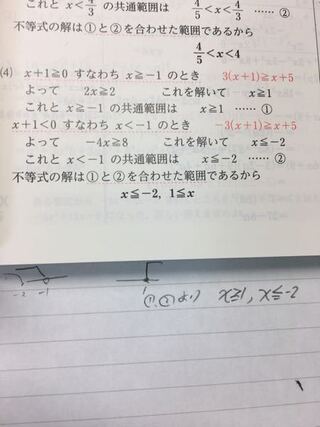 これと x<4/3 の共通範囲は 4/5<x<4/3 …… ②
不等式の解は①と②を合わせた範囲であるから
4/5<x<4
(4) x+1≧0 すなわち x≧-1 のとき 3(x+1)≧x+5
よって 2x≧2 これを解いて x≧1
これと x≧-1 の共通範囲は x≧1 …… ①
x+1<0 すなわち x<-1 のとき -3(x+1)≧x+5
よって -4x≧8 これを解いて x≦-2
これと x<-1 の共通範囲は x≦-2 …… ②
不等式の解は①と②を合わせた範囲であるから
x≦-2, 1≦x
-2 -1 1